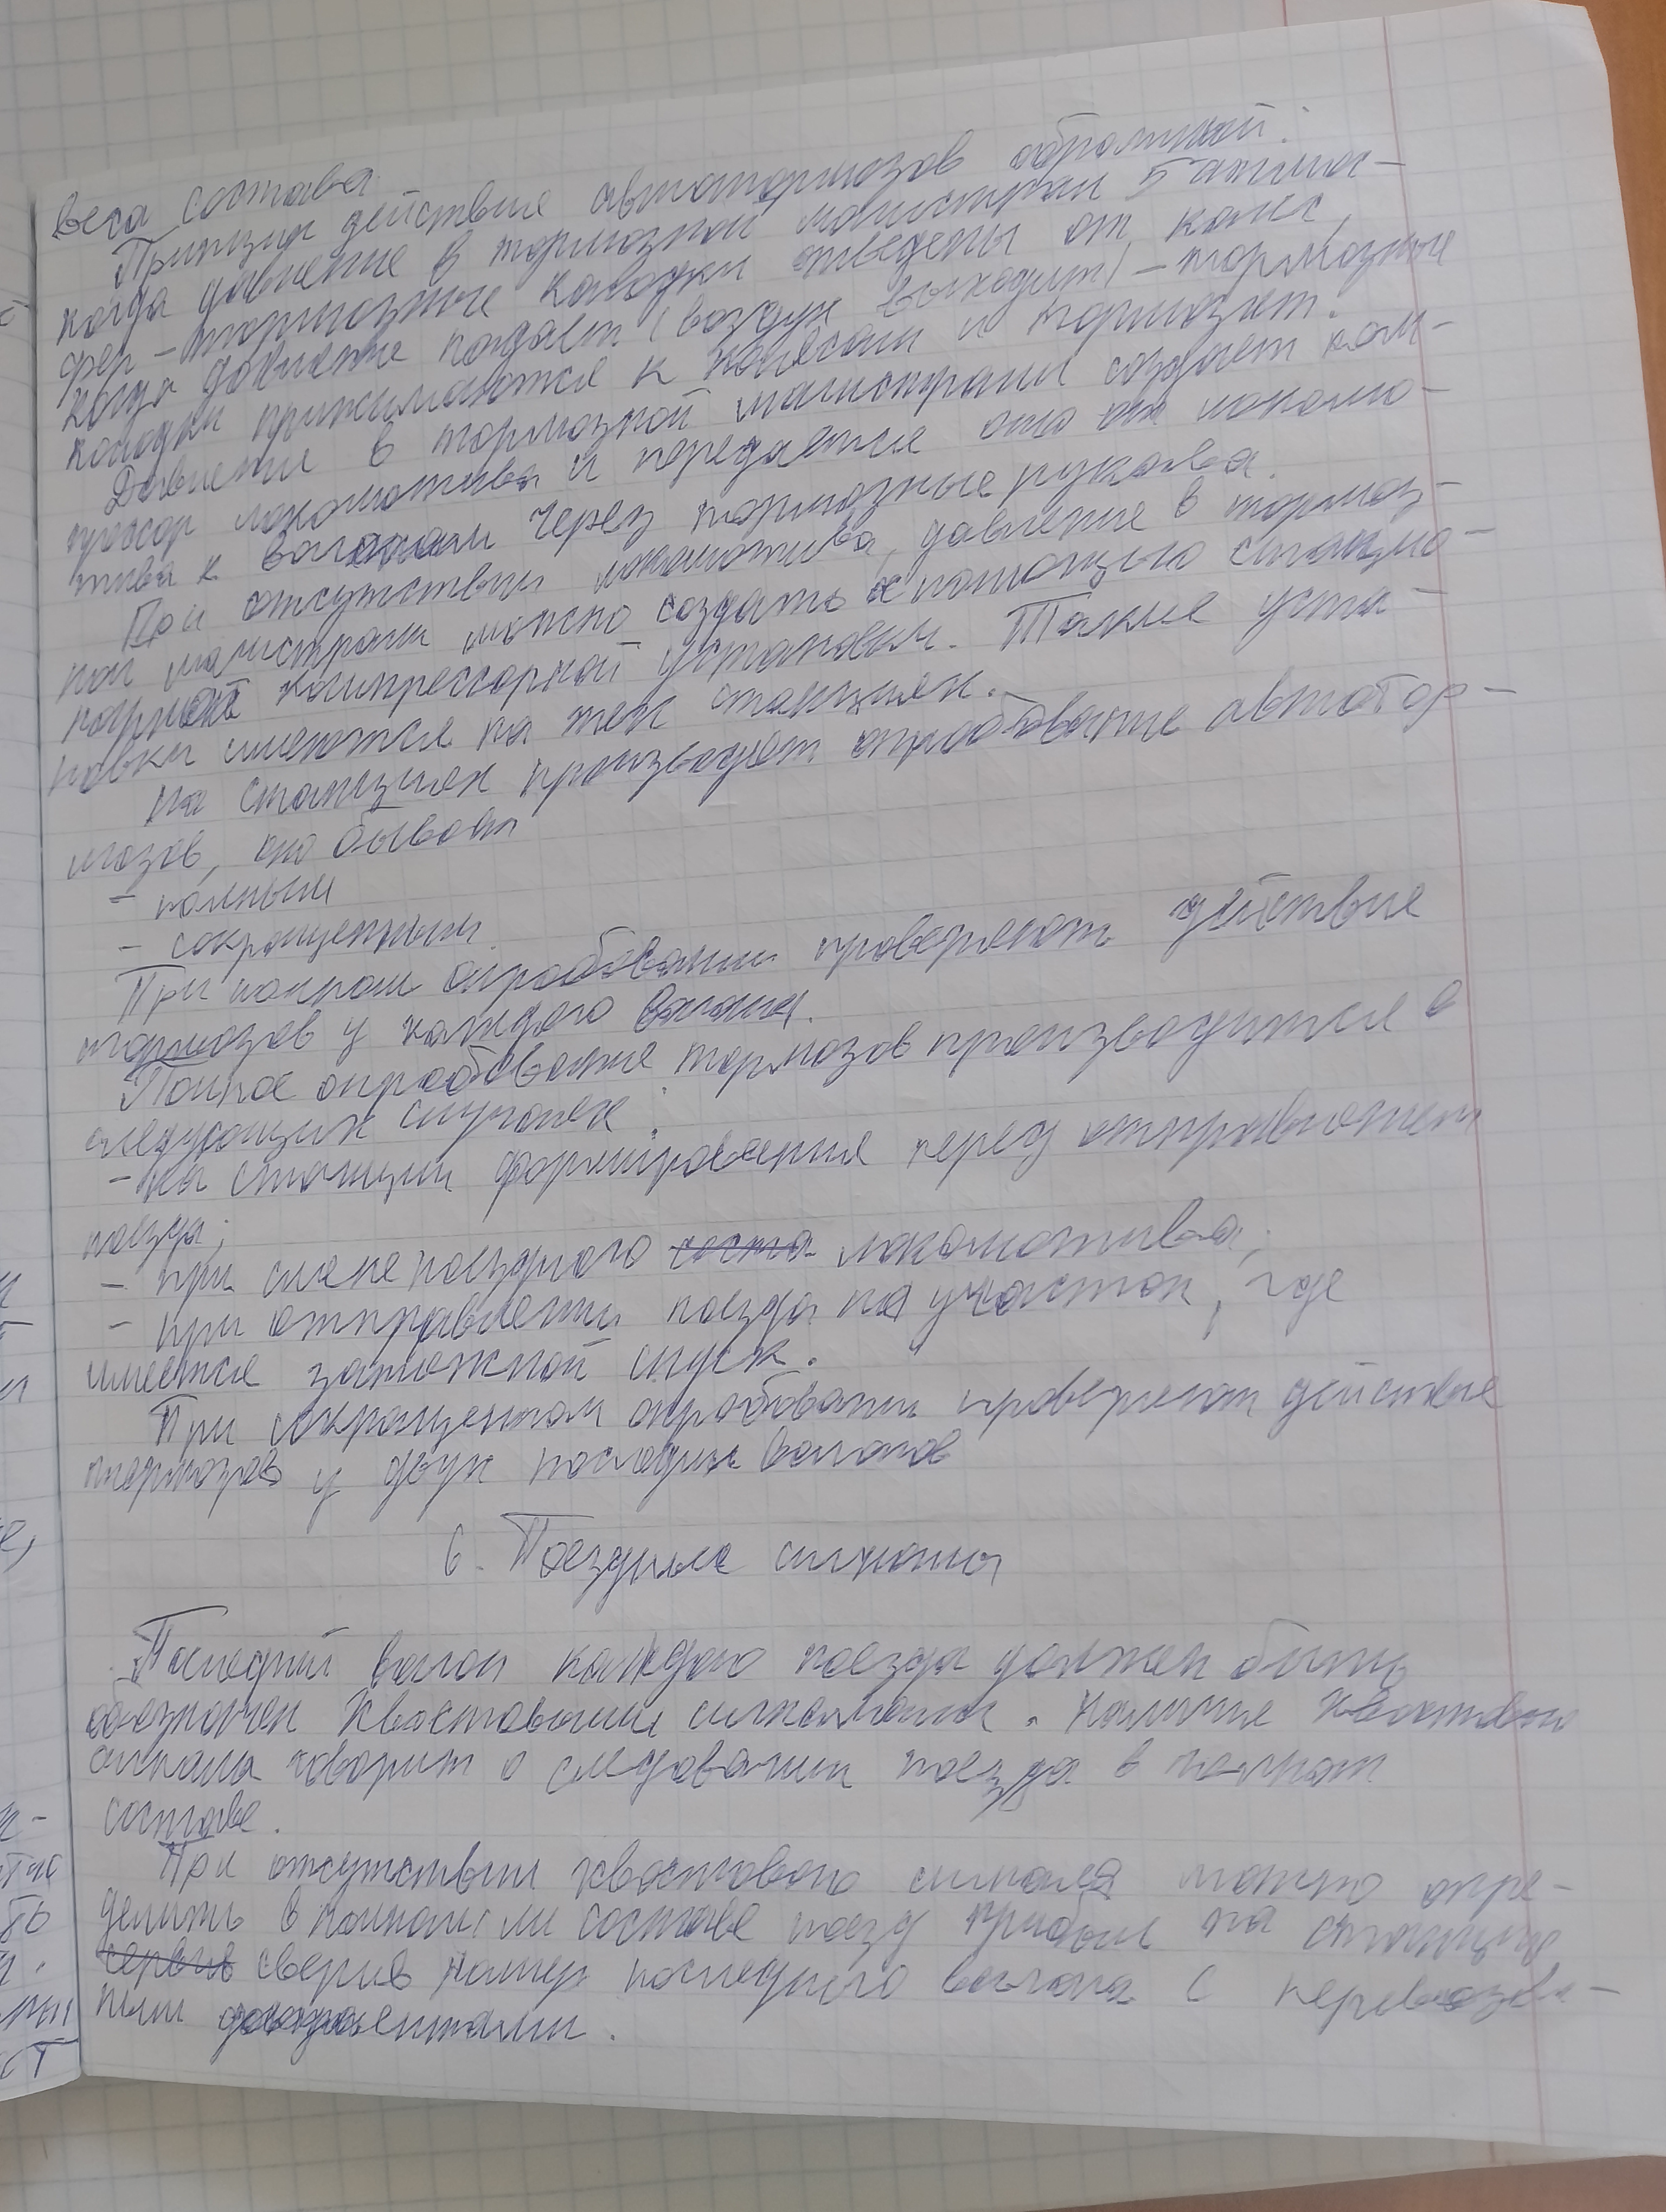 веса состава.
Принцип действие автотормозов обратный:
когда давление в тормозной магистрали 5 атмос-
фер - тормозные колодки отведены от колёс,
когда давление падает (воздух выходит) - тормозные
колодки прижимаются к колёсам и тормозят.
Давление в тормозной магистрали создает ком-
прессор локомотива и передается оно от локомо-
тива к вагонам через тормозные рукава.
При отсутствии локомотива, давление в тормоз-
ной магистрали можно создать с помощью стацио-
нарной компрессорной установки. Такие уста-
новки имеются на тех станциях.
На станциях производят опробование автотор-
мозов, оно бывает
- полным
- сокращенным.
При полном опробовании проверяют действие
тормозов у каждого вагона.
Полное опробование тормозов производится в
следующих случаях:
- на станции формирования перед отправлением
поезда;
- при смене поездного локомотива;
- при отправлении поезда на участок, где
имеется затяжной спуск.
При сокращенном опробовании проверяют действие
тормозов у двух последних вагонов
6. Поездные сигналы
Последний вагон каждого поезда должен быть
обозначен хвостовыми сигналами. Наличие хвостового
сигнала говорит о следовании поезда в полном
составе.
При отсутствии хвостового сигнала можно опре-
делить в полном ли составе поезд прибыл на станцию
сверив номер последнего вагона с перевозоч-
ными документами.